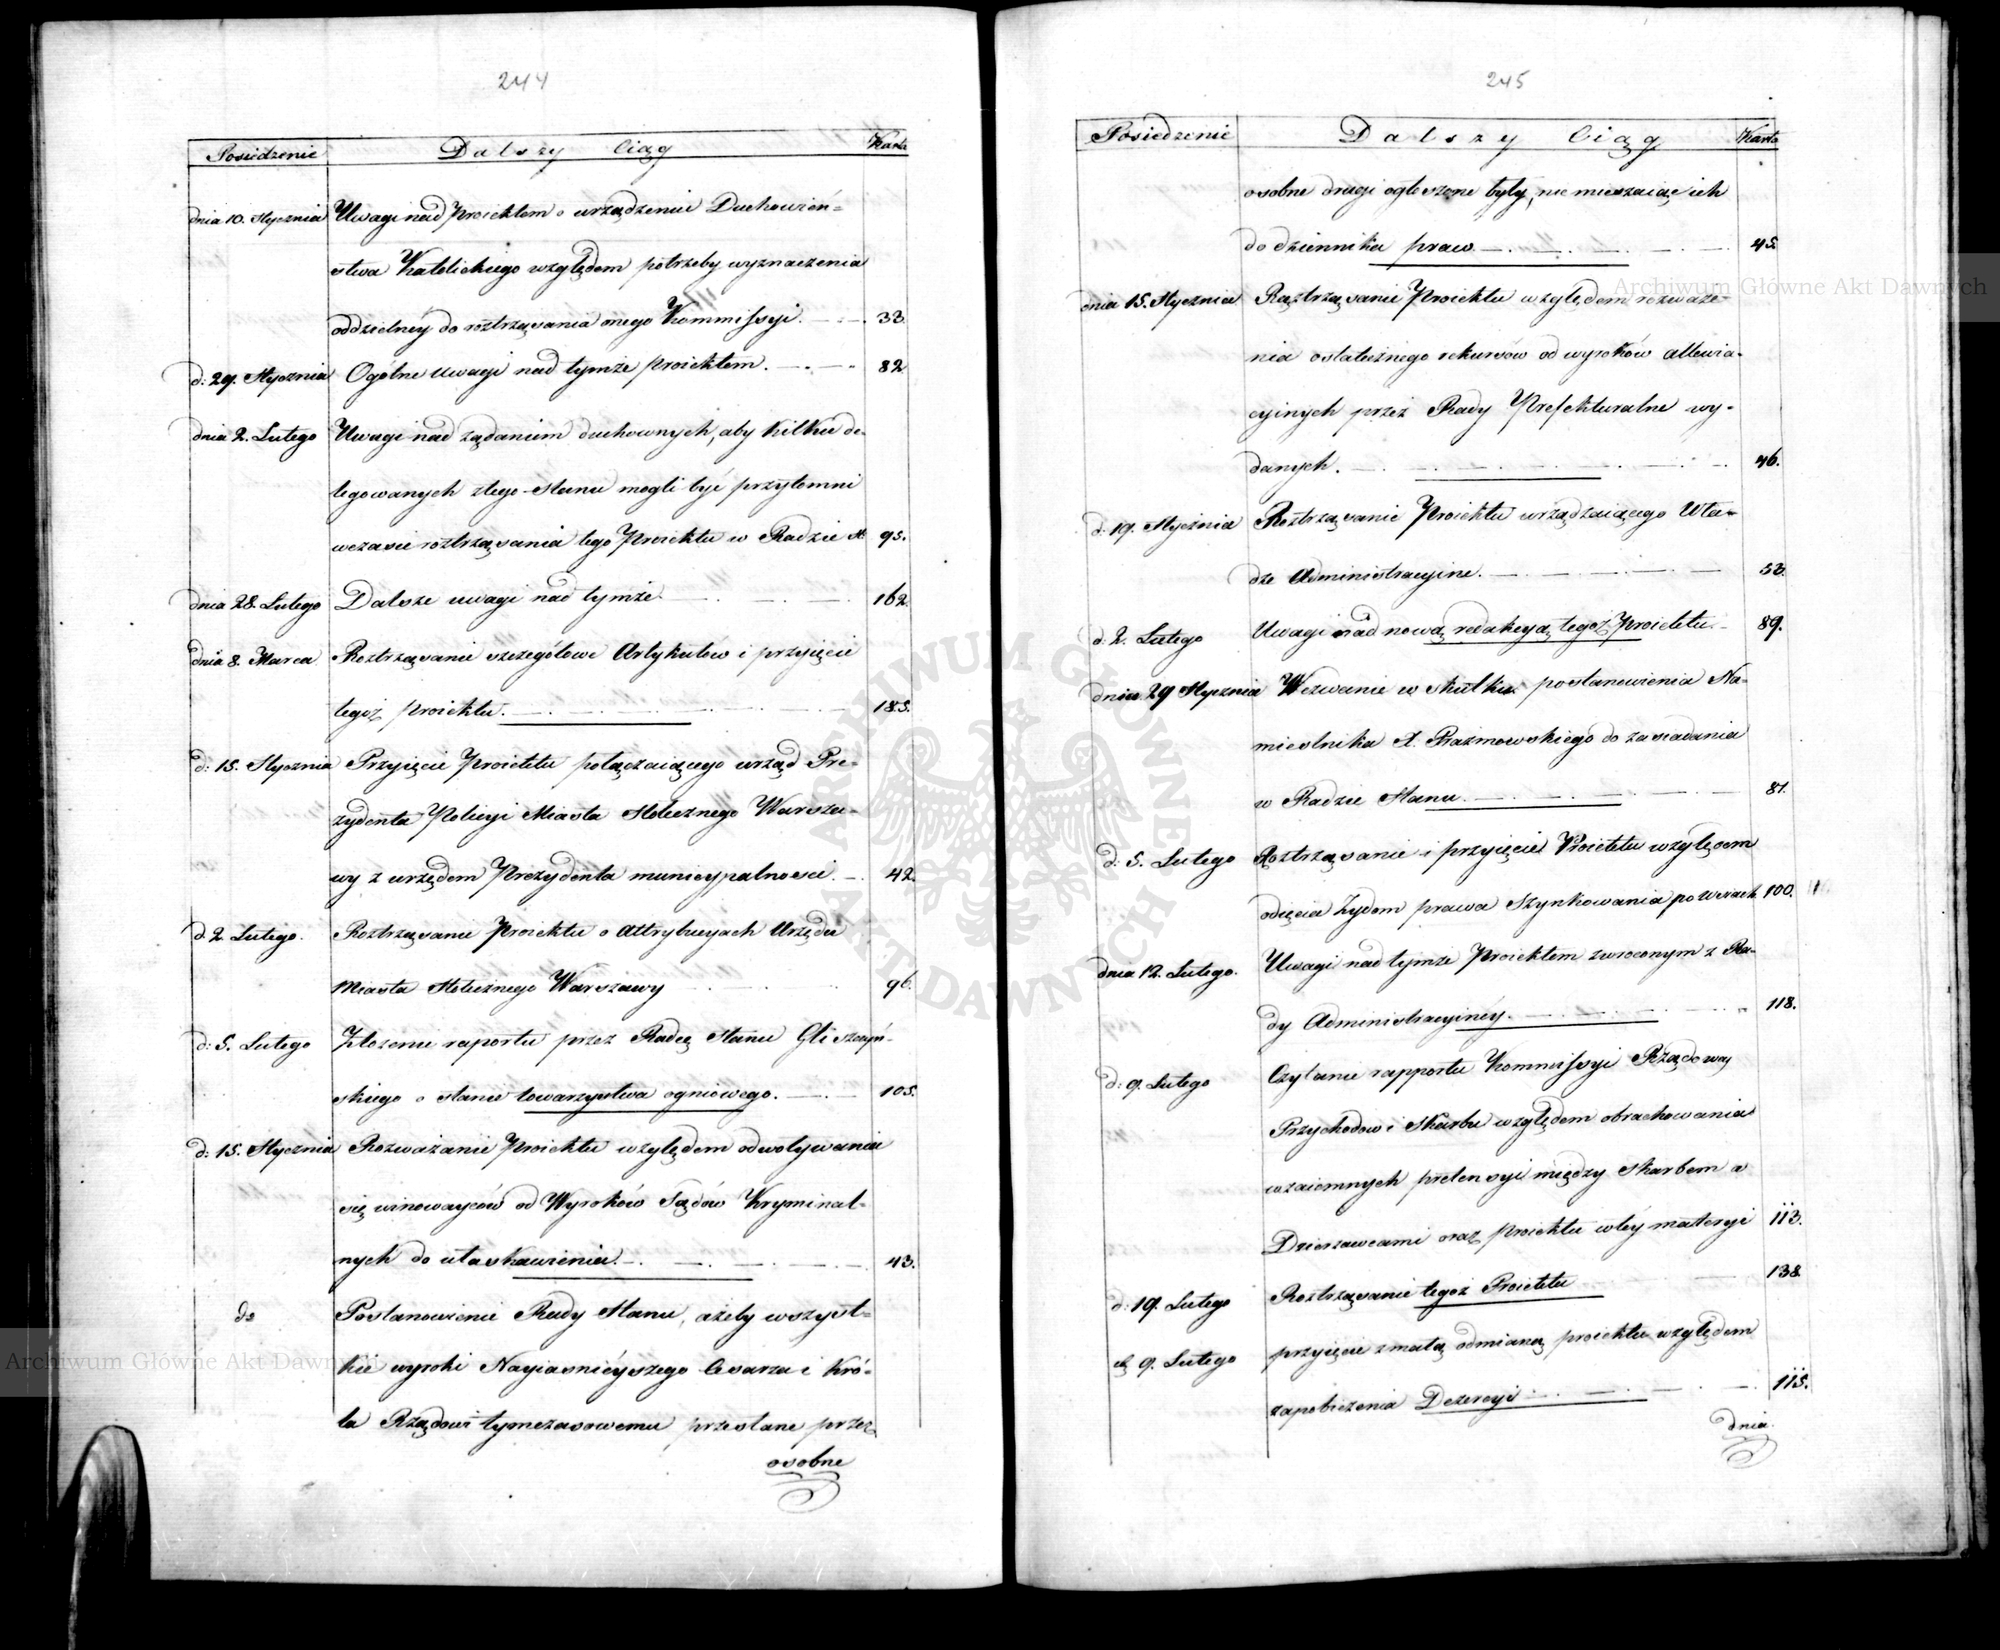 244
Posiedzenie Dalszy Ciąg Karta
dnia 10. Stycznia Uwagi nad Proiektem o urządzeniu Duchowień-
stwa Katolickiego względem potrzeby wyznaczenia
oddzielnéy do roztrząsania onego Kommissyi. 33
d: 29. Stycznia Ogólne uwagi nad tymże proiektem. 82
dnia 2. Lutego Uwagi nad żądaniem duchownych, aby kilku de-
legowanych z tego Stanu mogli być przytomni
wczasie roztrząsania tego Proiektu w Radzie St: 95.
dnia 28. Lutego Dalsze uwagi nad tymże 162
dnia 8. Marca Roztrząsanie szczegółowe Artykułów i przyięcie
tegoż proiektu. 185.
d: 15. Stycznia Przyięcie Proiektu połączaiącego urząd Pre-
zydenta Policyi Miasta Stołecznego Warsza-
wy z urzędem Prezydenta municypalności. 42.
d. 2. Lutego. Roztrząsanie Proiektu o Attrybucyach Urzędu
Miasta Stołecznego Warszawy 96.
d: 5. Lutego Złożenie raportu przez Radcę Stanu Gliszczyń-
skiego o stanie towarzystwa ogniowego. 105.
d: 15. Stycznia Rozważanie Proiektu względem odwoływania
się winowayców od Wyroków Sądów Kryminal-
nych do ułaskawienia. 43.
do Postanowienie Rady Stanu, ażeby wszyst-
kie wyroki Nayiaśniéyszego Cesarza i Kró-
la Rządowi tymczasowemu przesłane przez
osobne
245
Posiedzenie Dalszy Ciąg Karta
osobne drugi ogłoszone były, nie mieszaiąc ich
do dziennika praw 45.
dnia 15. Stycznia Roztrząsanie Proiektu względem rozważe-
nia ostatecznego rekursów od wyroków allewia-
cyinych przez Rady Prefekturalne wy-
danych. 46.
d: 19. Stycznia Roztrząsanie Proiektu urządzaiącego Wła-
dze Administracyine. 53.
d: 2. Lutego Uwagi nad nową redakcyą tegoż Proiektu. 89.
dnia 29 Stycznia Wezwanie w skutku postanowienia Na-
miestnika X. Prażmowskiego do zasiadania
w Radzie Stanu. 81.
d: 5. Lutego Roztrząsanie i przyięcie Proiektu względem
odięcia Żydom prawa szynkowania po wsiach 100.
dnia 12. Lutego. Uwagi nad tymże Proiektem zwróconym z Ra-
dy Administracyinéy. 118.
d: 9. Lutego Czytanie rapportu Kommissyi Rządowey
Przychodów i Skarbu względem obrachowania
wzaiemnych pretensyi między Skarbem a
Dzierzawcami oraz proiektu w téy materyi 113.
d: 19. Lutego Roztrząsanie tegoż Proiektu 138.
d. 9. Lutego przyięcie z małą odmianą proiektu względem
zapobieżenia Dezercyi 115.
dnia
Archiwum Główne Akt Dawnych
Archiwum Główne Akt Dawnych
ARCHIWUM GŁÓWNE AKT DAWNYCH